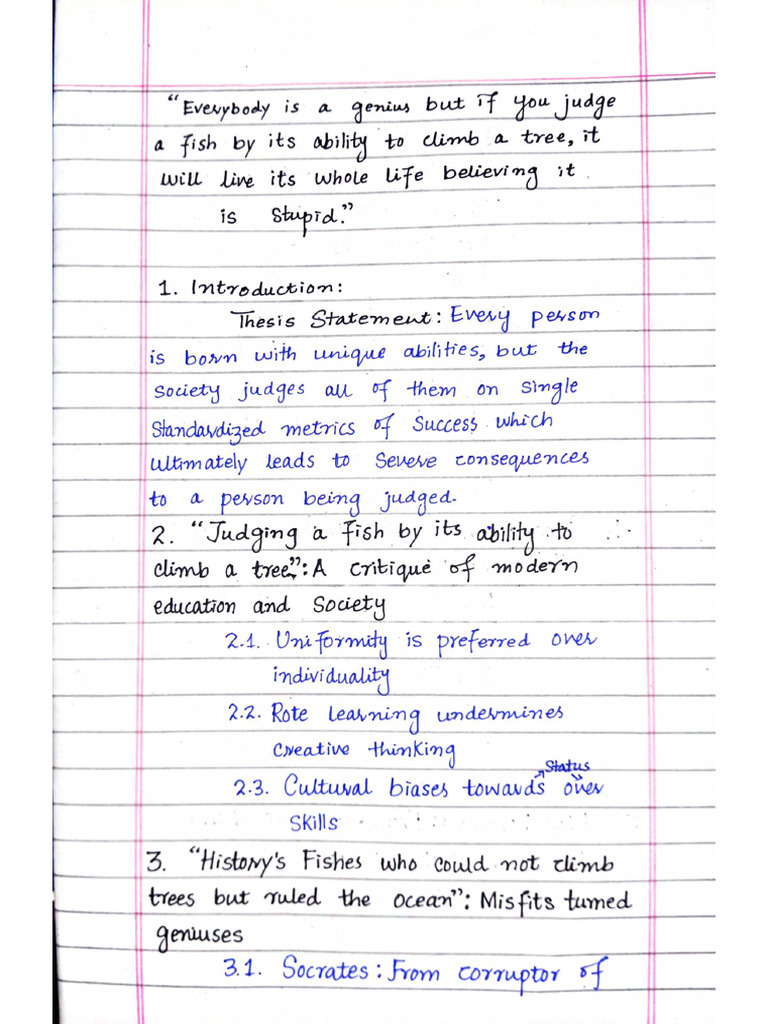 "Everybody is a genius but if you judge
a fish by its ability to climb a tree, it
will live its whole life believing it
is stupid."
1. Introduction:
Thesis Statement: Every person
is born with unique abilities, but the
society judges all of them on single
standardized metrics of success which
ultimately leads to severe consequences
to a person being judged.
2. "Judging a fish by its ability to
climb a tree,": A critique of modern
education and society
2.1. Uniformity is preferred over
individuality
2.2. Rote learning undermines
creative thinking
status
2.3. Cultural biases towards over
skills
3. "History's Fishes who could not climb
trees but ruled the ocean": Misfits turned
geniuses
3.1. Socrates: From corruptor of